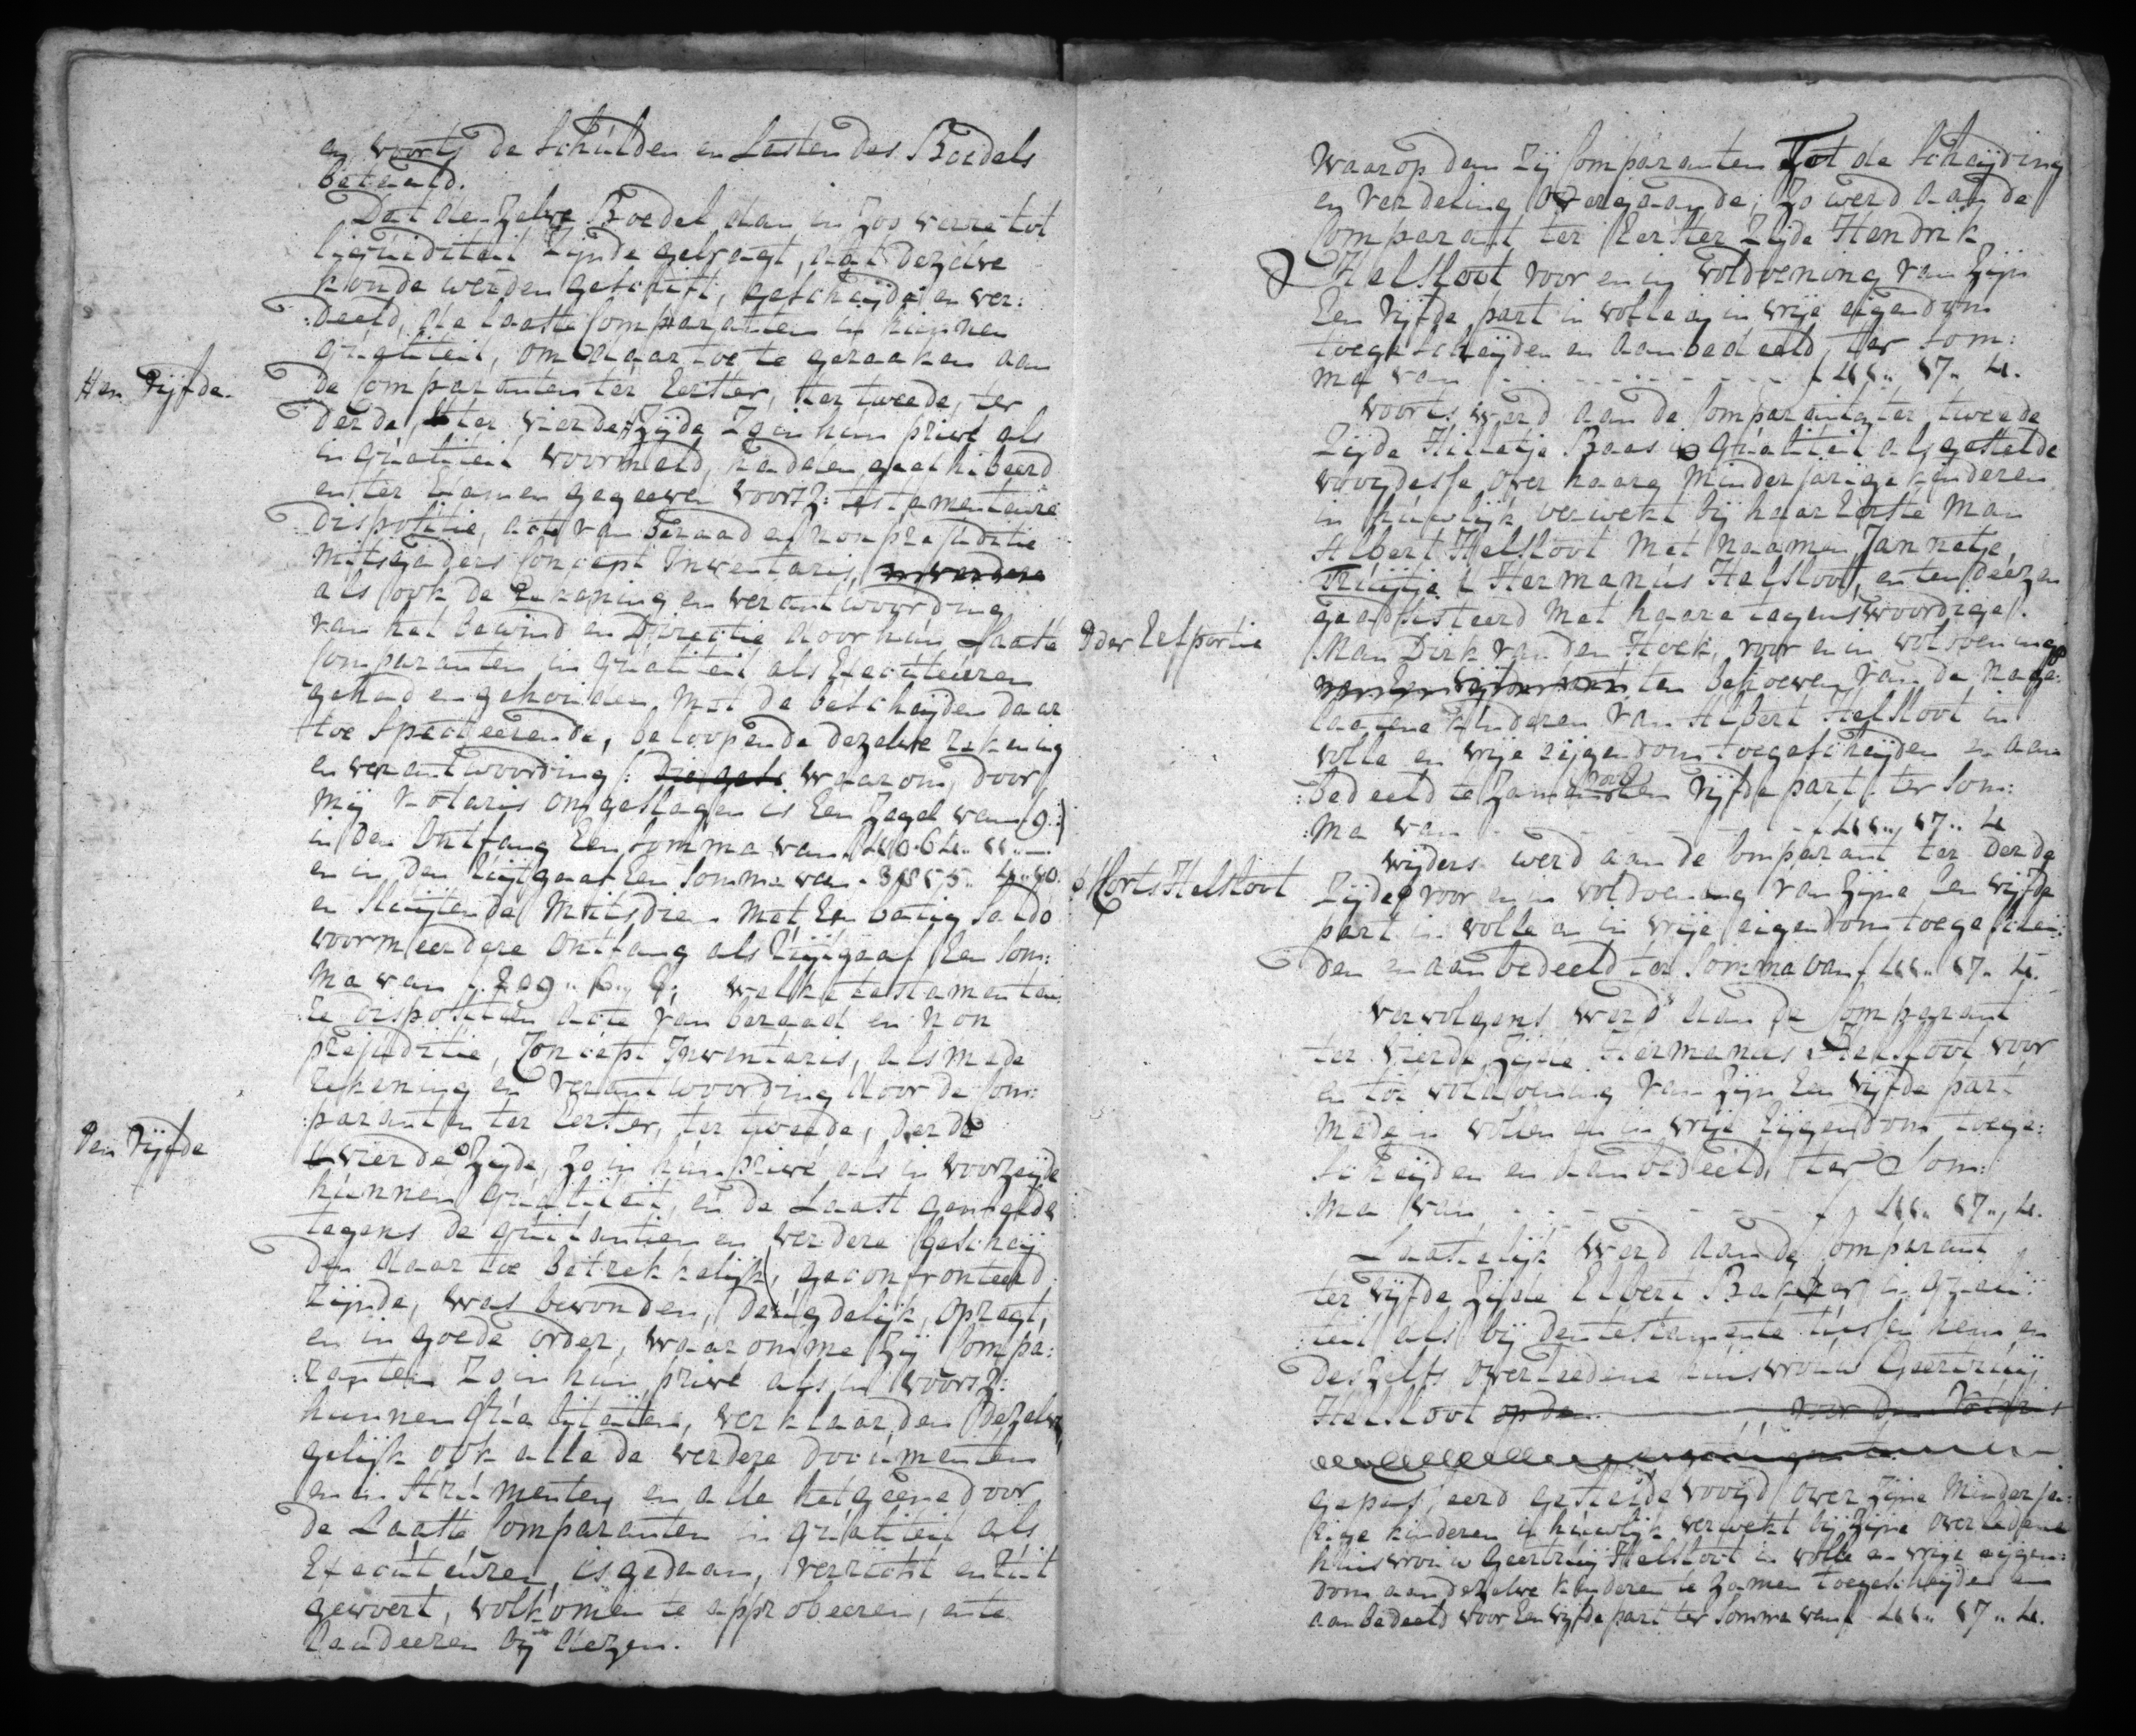 en voorts de Schulden en Lasten des Boedels
betaald.
Dat den Zelve Boedel dan in Zoo verre tot
liquiditeit Zijnde gebragt, dat dezelve
konde werden geschift, gescheijde en ver:
:deeld, de laatste Comparanten in hunnen
qualiteit, om daar toe te geraaken aan
de Comparanten ter Eerster, ter tweede, ter
derde, ter vierde Zijde Zoo in hun privé als
in qualiteit voormeld, hadden geexhibeerd
en ter Examen gegeeven voorsz: testamentaire
dispositie, acte van beraad en non prejuditie
mitsgaders Concept Inventaris
als ook de Rekening en verantwoording
van het bewind en Directie door hun Laatste
Comparanten in qualiteit als Executeuren
gehad en gehouden, met de bescheijden daar
toe specteerende, beloopende dezelve rekening
en verantwoording (: waarom, door
mij Notaris omgeslagen is Een Zegel van
in den Ontfang Een Somma van
en in den uijtgaaf Een Somma van
en sluijtende mitsdien met Een batig Saldo
voor meerdere Ontfang als uijtgaaf Een Som:
ma van f 209.. 6.. welke testamentai:
:re dispositien acte van beraad en non
prejuditie, Concept Inventaris, als mede
Rekening en verantwoording door de Com:
:paranten ter Eerster, ter tweede, derde
vierde Zijde, Zo in hun privé als in voorzeijde
hunnen qualiteit, en de Laast gemelde
tegens de quitantien en verdere bescheij
den daar toe betrekkelijk, geconfronteerd
Zijnde, was bevonden, deugdelijk, opregt,
en in goede order, waaromme Zij Compa:
:ranten Zo in hun privé als in voorsz:
hunnen qualiteiten, verklaarden dezelve
gelijk ook alle de verdere documenten
en instrumenten en alle hetgeene door
de Laatste Comparanten in qualiteit als
Executeuren, is gedaan, verricht en uit
gevoert, volkomen te approbeeren, ente
laudeeren bij dezen.
Hen Vijfde.
Den Vijfde
Waarop dan Zij Comparanten Tot de Scheijding
en verdeling overgaande; Zo werd aan de
Comparant ter Eerster Zijde Hendrik
Helsloot voor en in voldoening van Zijn
Een Vijfde part in volle en in vrije eigendom
toegescheijden en aanbedeeld, ter Som:
ma van - - - - - f 411.. 17.. 4.
voorts werd aan de Comparante ter tweede
Zijde Hilletje Baas in qualiteit als gestelde
voogdesse over haare minderjarige kinderen
in huwlijk verwekt bij haar Eerste Man
Albert Helsloot met naamen Jannetje,
Truijtje & Hermanus Helsloot, en ten deezen
geadsisteerd met haare tegenswoordige
Man Dirk van den Hoek, voor en in voldoening
ten behoeve van de nage:
laatene kinderen van Albert Helsloot in
volle en vrije eijgendom toegescheijden en aan
:bedeeld te Zamen voor Een Vijfde part ter Som:
:ma van - - - - f 411.. 17.. 4
wijders werd aan de Comparant ter derde
Zijde voor en in voldoening van Zijne Een vijfde
part in volle en in vrije eigendom toegeschei:
den en aanbedeeld ter Somma van f 411.. 17.. 4.
vervolgens werd aan de Comparant
ter vierde Zijde Hermanus Helsloot voor
en tot voldoening van Zijn Een vijfde part
mede in vollen en in vrije Eijgendom toege:
scheijden en aanbedeeld, ter Som:
ma van - - - - - f 411.. 17.. 4.
Laatstelijk werd aan de Comparant
ter vijfde Zijde Elbert Bakker in quali:
:teit als bij den testamente tussen hem en
deszelfs overleedene huisvrouw Geertruij
Helsloot op den voor den Notaris
gepasseerd gestelde voogd over Zijne minderja:
rige kinderen in huwlijk verwekt bij Zijne overledene
huisvrouw Geertruij Helsloot in volle en vrije eijgen:
dom aan dezelve kinderen te Zamen toegescheijden en
aanbedeeld voor Een vijfde part ter Somma van f 411.. 17.. 4.
der Erfportie
Corns Helsloot